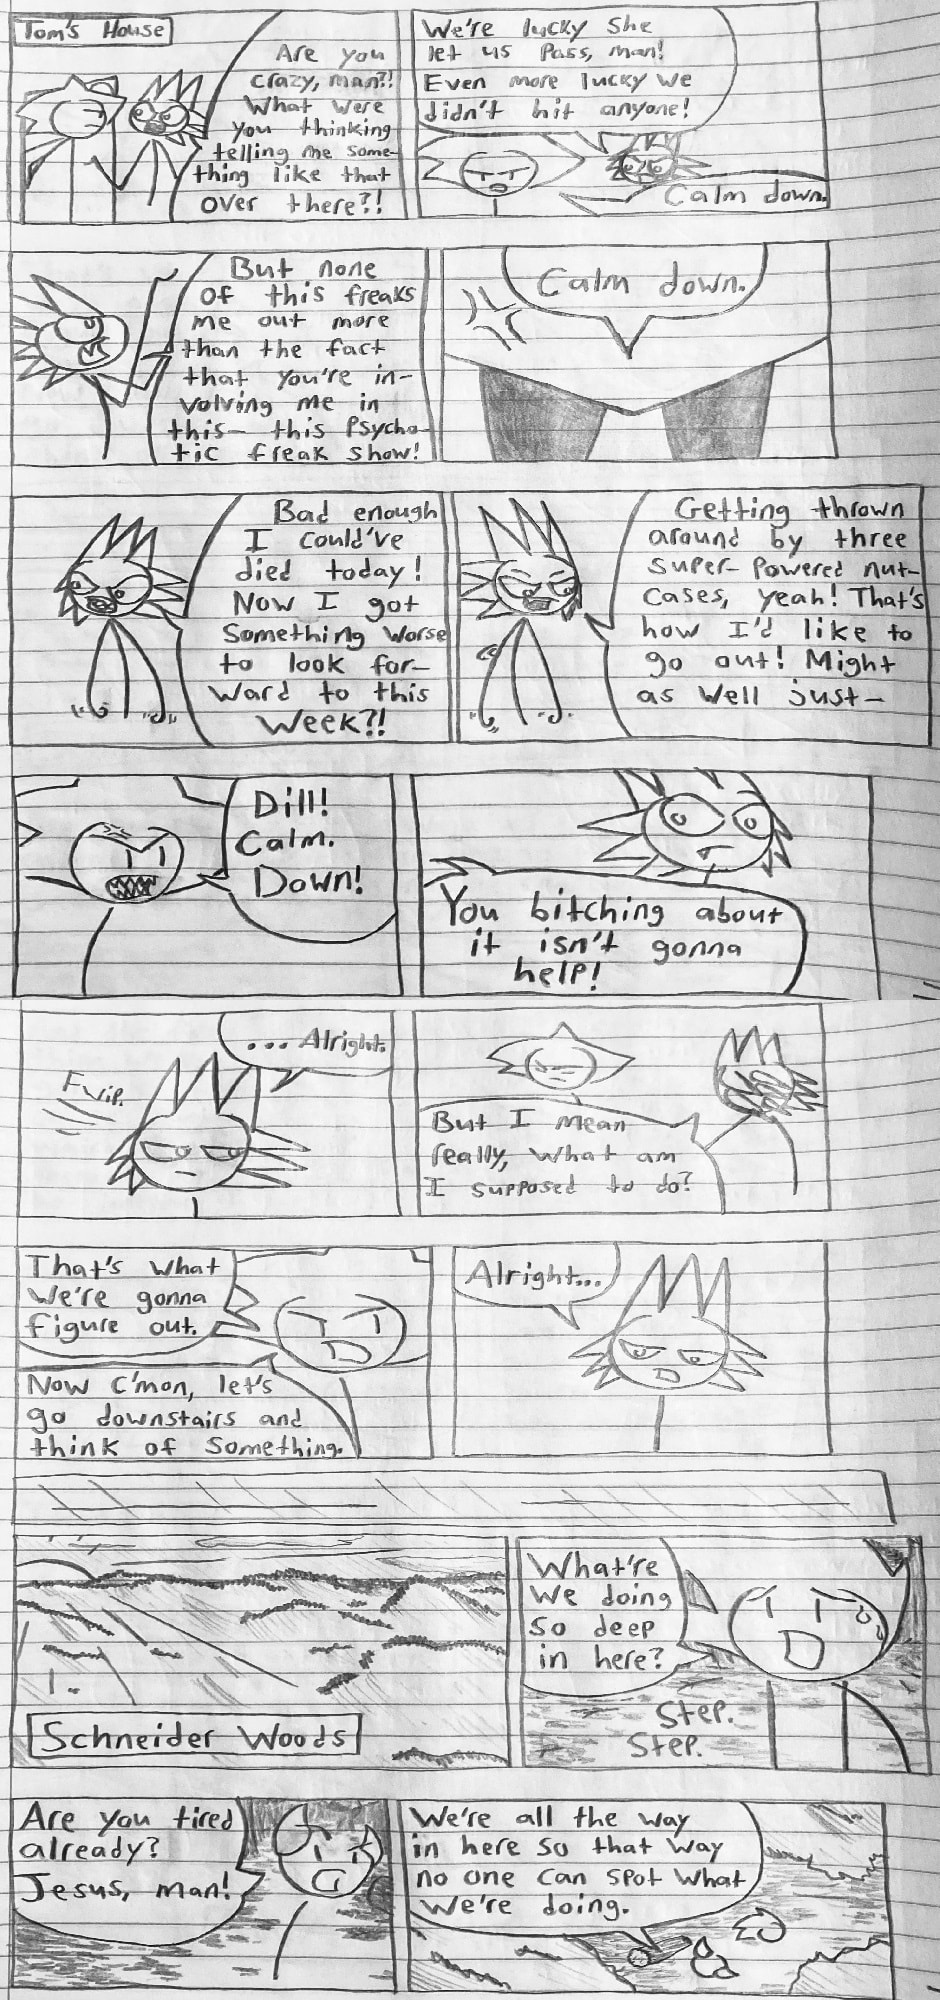 Tom's House
Are you
crazy, man?!
What were
you thinking
telling me some-
thing like that
over there?!
We're lucky she
let us pass, man!
Even more lucky we
didn't hit anyone!
Calm down.
But none
of this freaks
me out more
than the fact
that you're in-
volving me in
this- this psycho-
tic freak show!
Calm down.
Bad enough
I could've
died today!
Now I got
something worse
to look for-
ward to this
week?!
Getting thrown
around by three
super-powered nut-
cases, yeah! That's
how I'd like to
go out! Might
as well just-
Dill!
Calm.
Down!
You bitching about
it isn't gonna
help!
... Alright.
Fwip.
But I mean
really, what am
I supposed to do?
That's what
we're gonna
figure out.
Now c'mon, let's
go downstairs and
think of something.
Alright...
Schneider Woods
What're
we doing
so deep
in here?
Step.
Step.
Are you tired
already?
Jesus, man!
We're all the way
in here so that way
no one can spot what
we're doing.